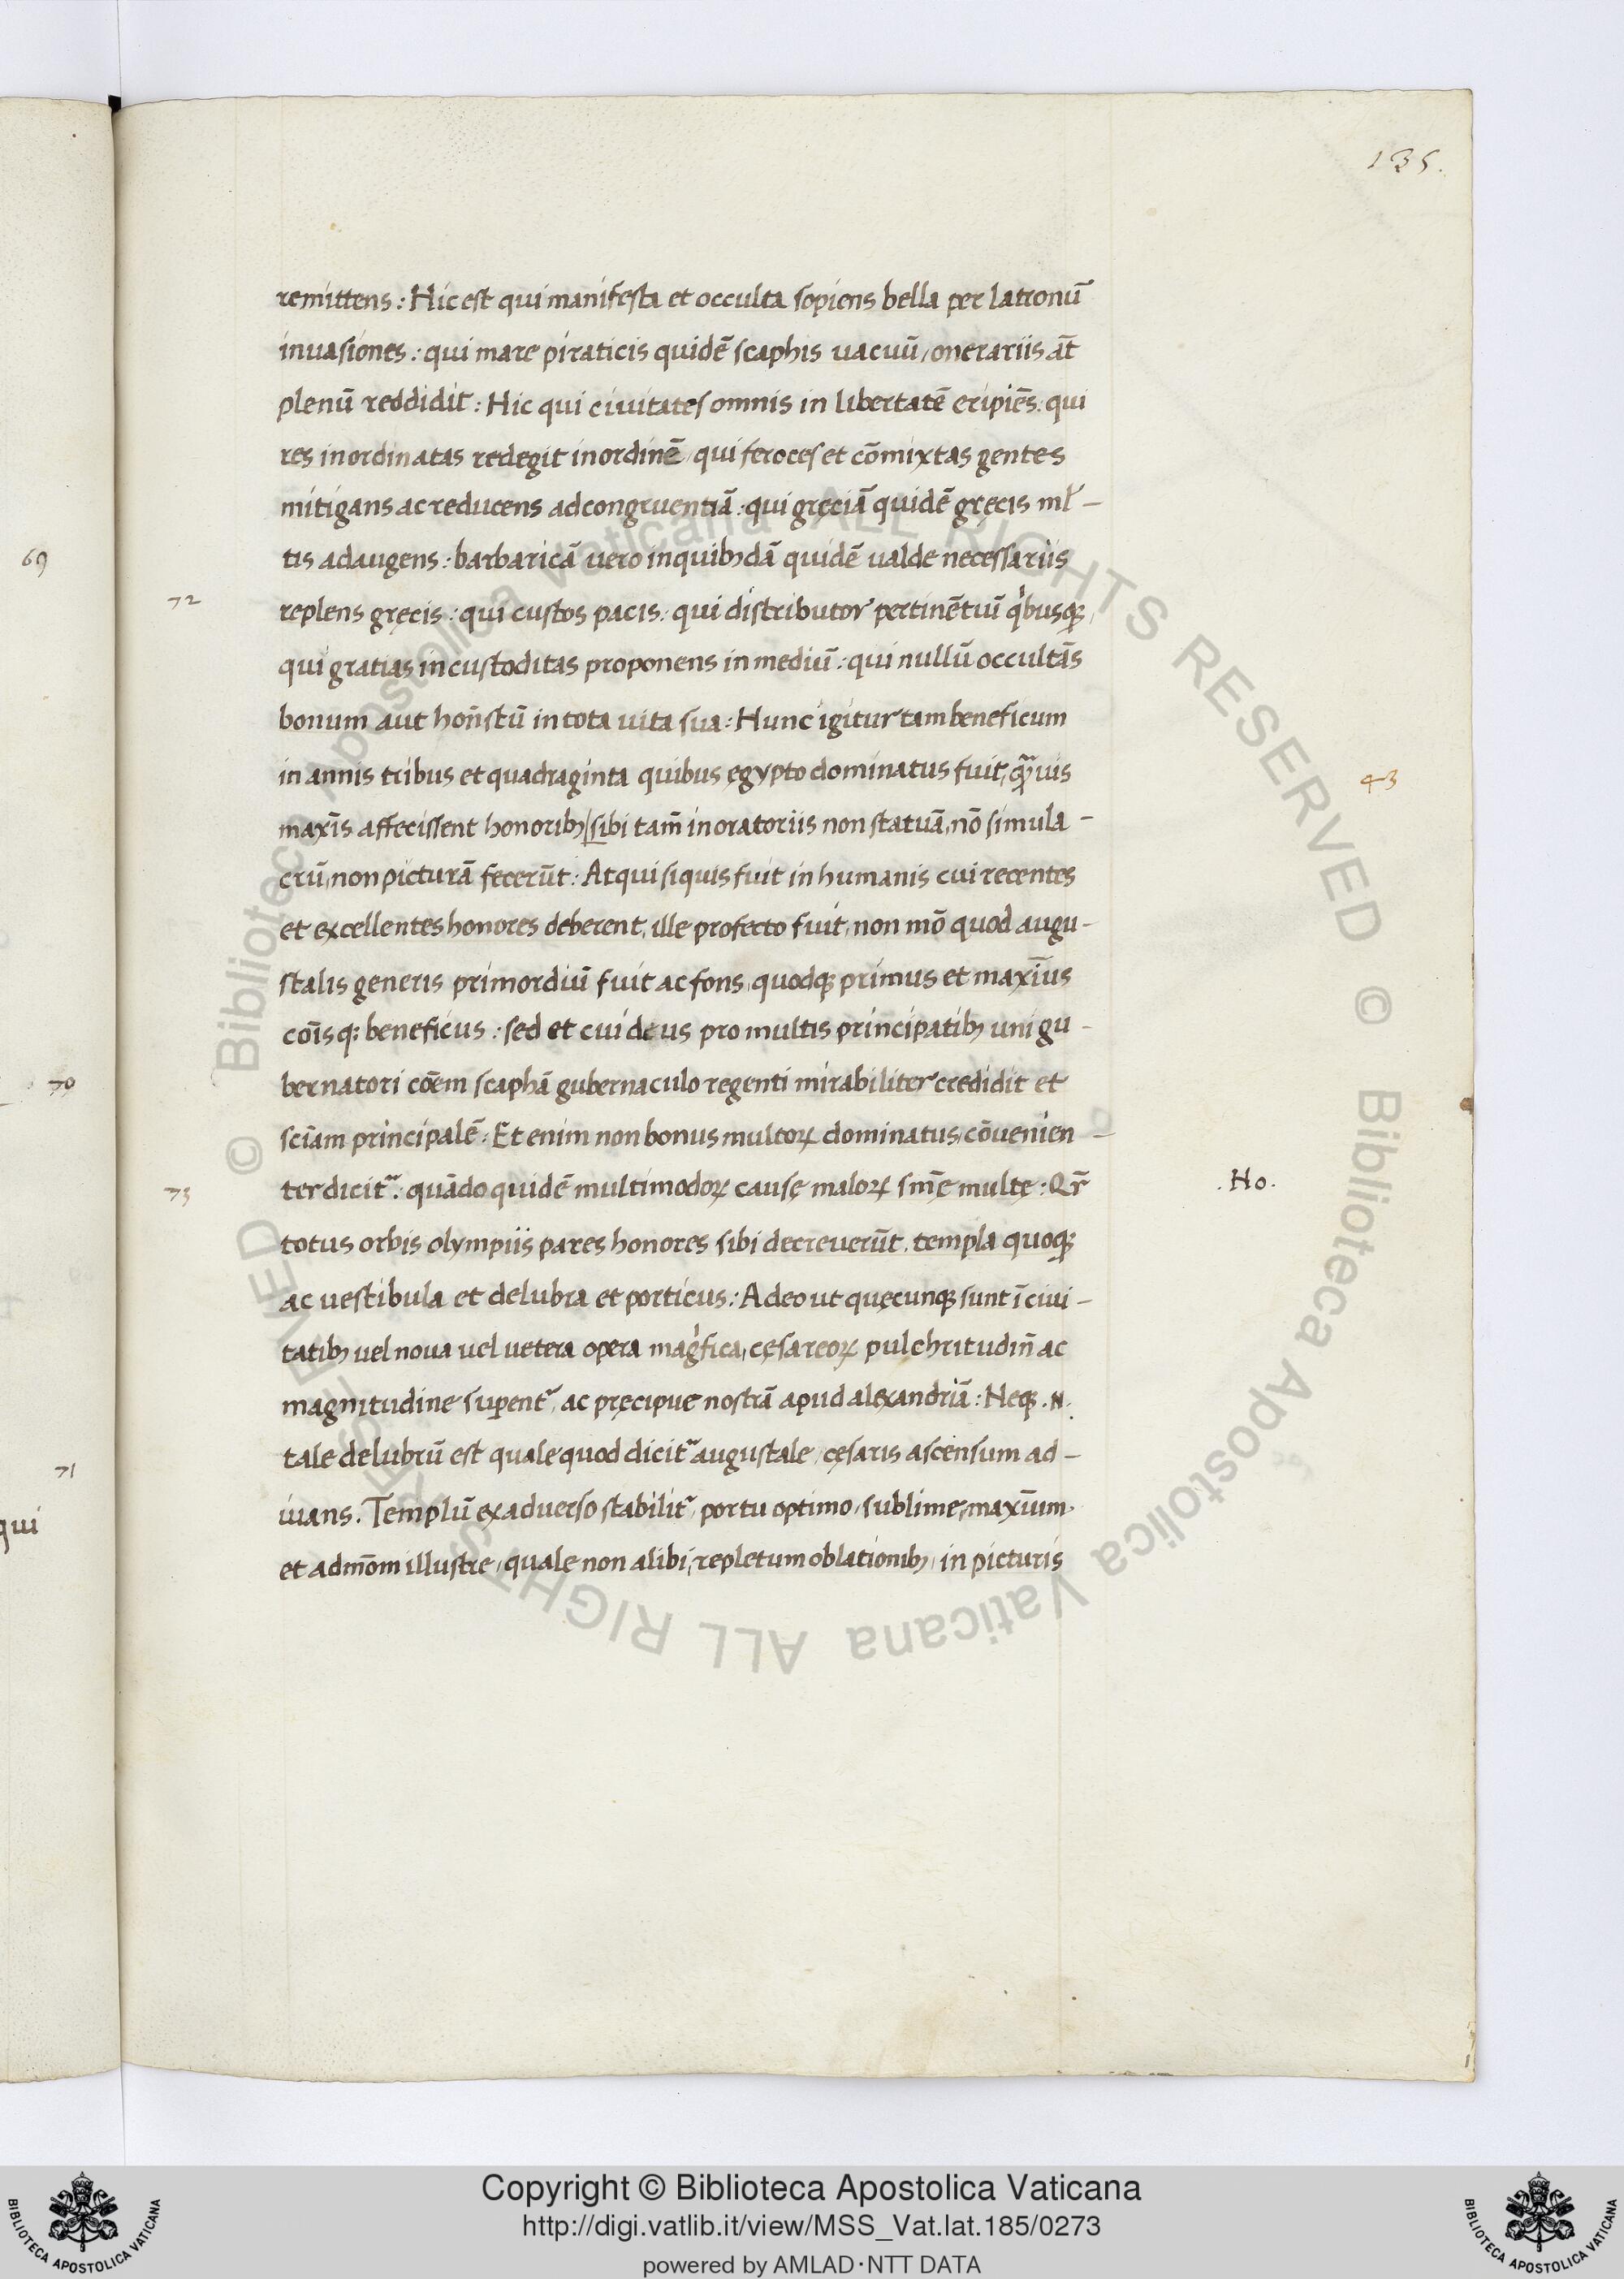 135.
remittens: Hic est qui manifesta et occulta sopiens bella per latronū
inuasiones: qui mare piraticis quidē scaphis uacuū, onerariis āt
plenū reddidit: Hic qui ciuitates omnis in libertatē eripiēs: qui
res inordinatas redegit in ordinē, qui feroces et cōmixtas gentes
mitigans ac reducens ad congruentiā: qui gręciā quidē gręcis ml̃-
tis adaugens: barbaricā uero in quibꝫdā quidē ualde necessariis
replens gręcis: qui custos pacis: qui distributor pertinētiū qͥbusqꝫ,
qui gratias incustoditas proponens in mediū: qui nullū occultās
bonum aut hon̄stū in tota uita sua: Hunc igitur tam beneficum
in annis tribus et quadraginta quibus ęgypto dominatus fuit, qᷓuis
maxīs affecissent honoribꝫ sibi tam̄ in oratoriis non statuā, nō simula-
crū, non picturā fecerūt: Atqui siquis fuit in humanis cui recentes
et excellentes honores deberent, ille profecto fuit, non mō quod augu-
stalis generis primordiū fuit ac fons, quodqꝫ primus et maxīus
cōisqꝫ beneficus: sed et cui deus pro multis principatibꝫ uni gu-
bernatori cōem scaphā gubernaculo regenti mirabiliter credidit et
sciām principalē: Et enim non bonus multoꝝ dominatus, cōuenien-
ter dicitᷣ: quādo quidē multimodoꝝ causę maloꝝ sn̄ię multę: Qr̄
totus orbis olympiis pares honores sibi decreuerūt. templa quoqꝫ
ac uestibula et delubra et porticus: Adeo ut quęcunqꝫ sunt ī ciui-
tatibꝫ uel noua uel uetera opera magͥfica, cęsareoꝝ pulchritudin̄ ac
magnitudine suꝑentᷣ, ac pręcipue nostrā apud alexandriā: Neqꝫ .N.
tale delubrū est quale quod dicitᷣ augustale, cęsaris ascensum ad-
iuans. Templū ex aduerso stabilitᷣ, portu optimo, sublime, maxīum.
et admōm illustre, quale non alibi, repletum oblationibꝫ, in picturis
72
73
43
.Ho.
69
70
71
qui
© Biblioteca Apostolica Vaticana ALL RIGHTS RESERVED © Biblioteca Apostolica Vaticana ALL RIGHTS RESERVED
Copyright © Biblioteca Apostolica Vaticana
http://digi.vatlib.it/view/MSS_Vat.lat.185/0273
powered by AMLAD·NTT DATA
BIBLIOTECA APOSTOLICA VATICANA
BIBLIOTECA APOSTOLICA VATICANA